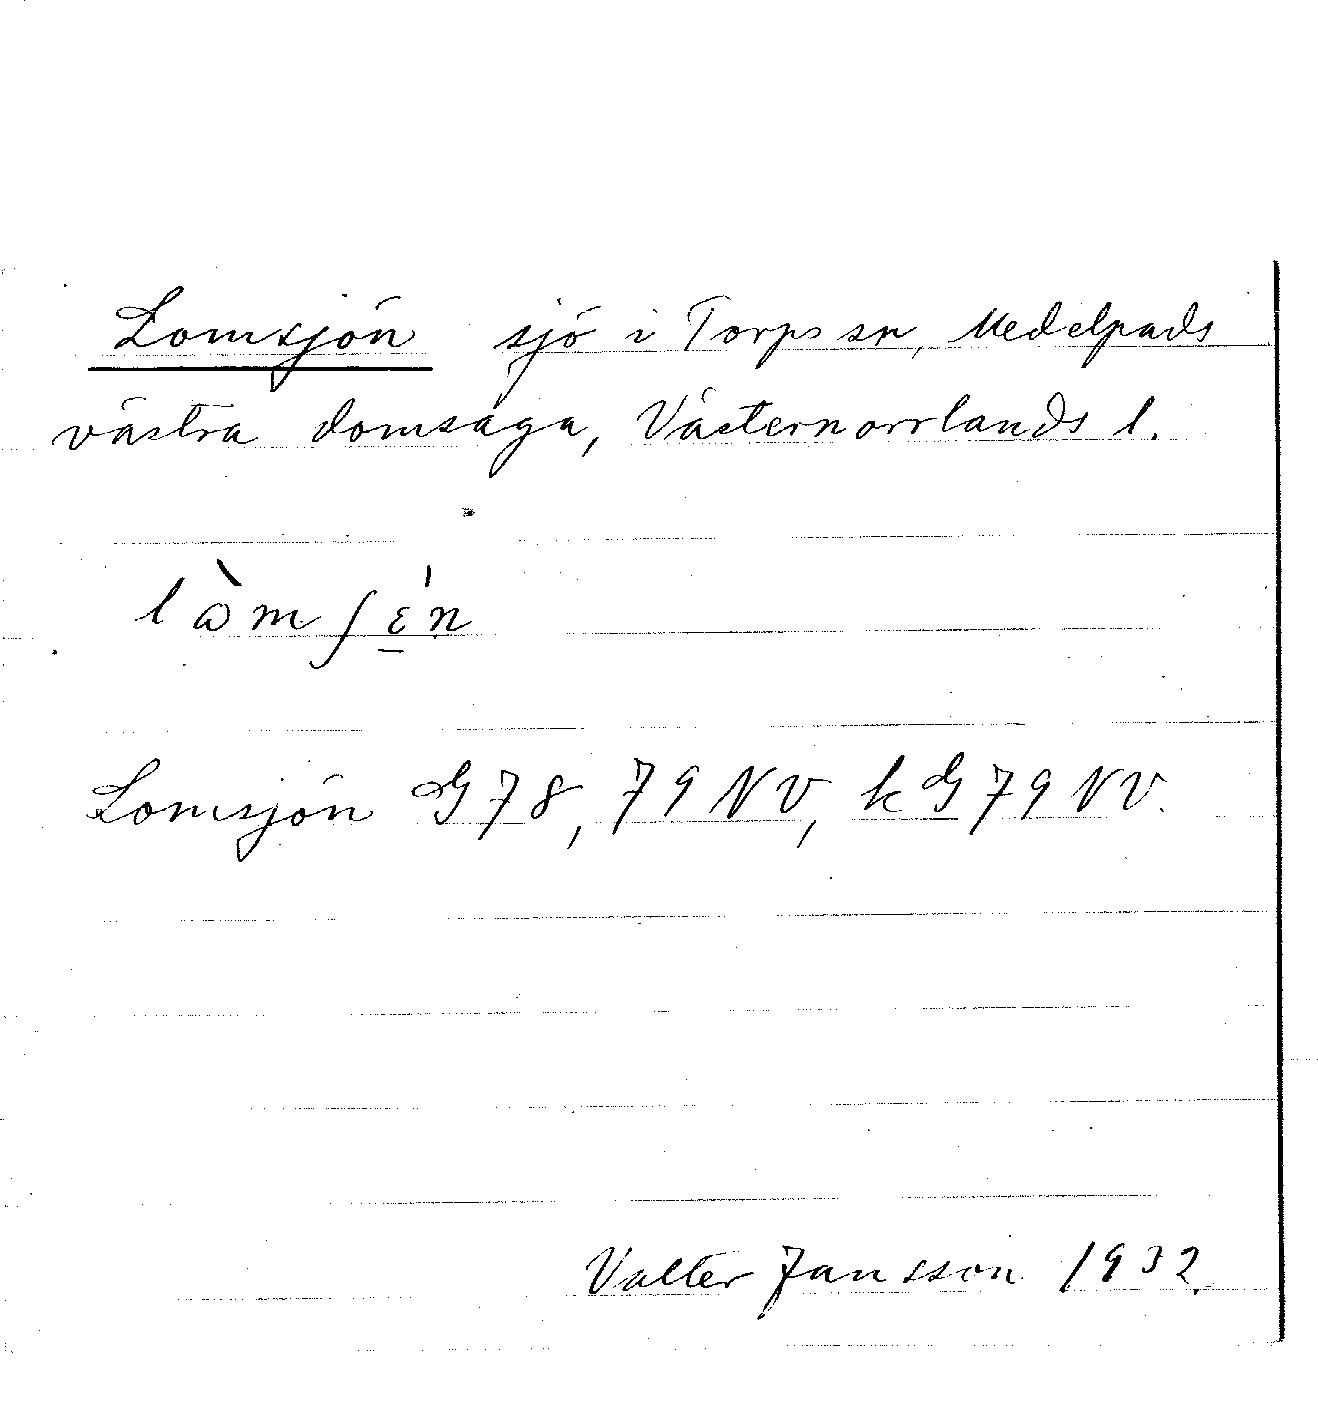 Lomsjön sjö i Torps sn, Medelpads
västra domsaga, Västernorrlands l.
lòmʃɛ̱́n
Lomsjön G 78, 79 NV, kG 79 NV.
Valter Jansson 1932.